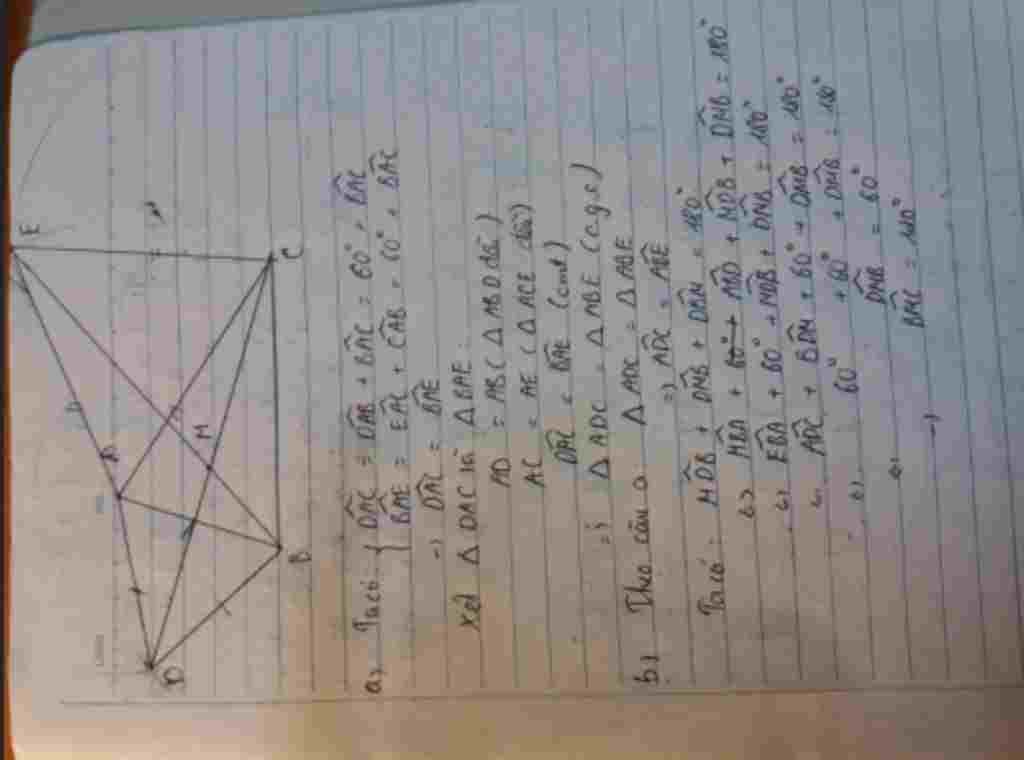 D
A
E
M
B
C
a) Ta có: { \widehat{DAC} = \widehat{DAB} + \widehat{BAC} = 60° + \widehat{BAC}
\widehat{BAE} = \widehat{EAC} + \widehat{CAB} = 60° + \widehat{BAC}
→ \widehat{DAC} = \widehat{BAE}
Xét Δ DAC và Δ BAE:
AD = AB (Δ ABD đều)
AC = AE (Δ ACE đều)
\widehat{DAC} = \widehat{BAE} (cmt)
=> Δ ADC = Δ ABE (c.g.c)
b) Theo câu a Δ ADC = Δ ABE
=> \widehat{ADC} = \widehat{ABE}
Ta có: \widehat{MDB} + \widehat{DMB} + \widehat{DBM} = 180°
\widehat{MBA} + 60° + \widehat{MDB} + \widehat{DMB} = 180°
\widehat{EBA} + 60° + \widehat{MDB} + \widehat{DMB} = 180°
\widehat{ADC} + \widehat{BDM} + 60° + \widehat{DMB} = 180°
60° + 60° + \widehat{DMB} = 180°
\widehat{DMB} = 60°